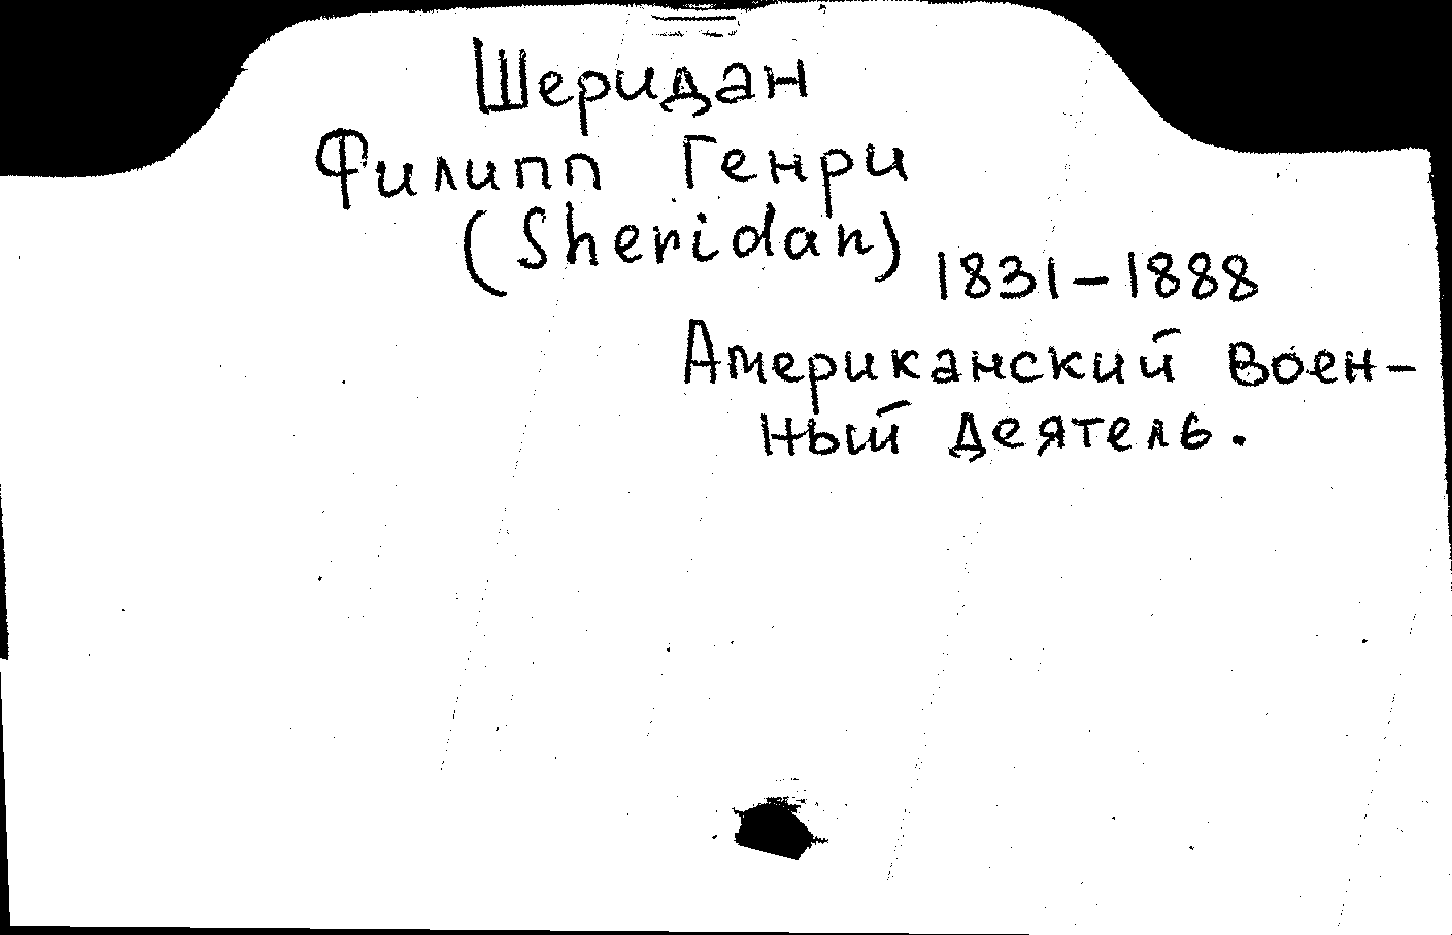 Шеридан
Филипп Генри
(Sheridan)
1831-1888
Американский воен-
ный деятель.